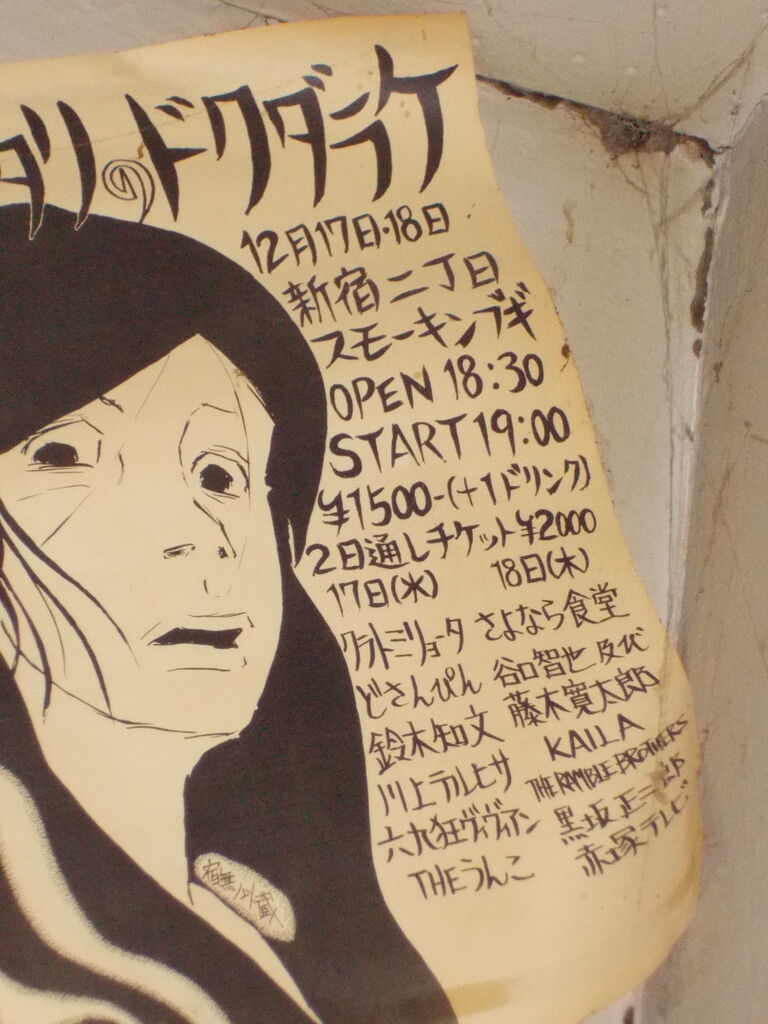 タリのドクダラケ
12月17日・18日
新宿二丁目
スモーキンブギ
OPEN 18:30
START 19:00
¥1500-(+1ドリンク)
2日通しチケット¥2000
17日(水)
クラトミリョータ
どさんぴん
鈴木知文
川上テルヒサ
六九狂ヴィヴィアン
THEうんこ
18日(木)
さよなら食堂
谷口智也及び
藤木寛太郎
KAILA
THE RAMBLE BROTHERS
黒坂正三郎
赤塚テレビ
宿無以蔵